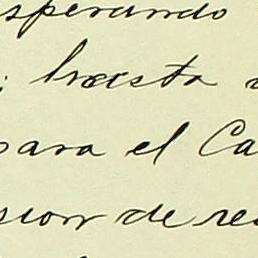 sperando
; hasta
para el Ca
sion de re